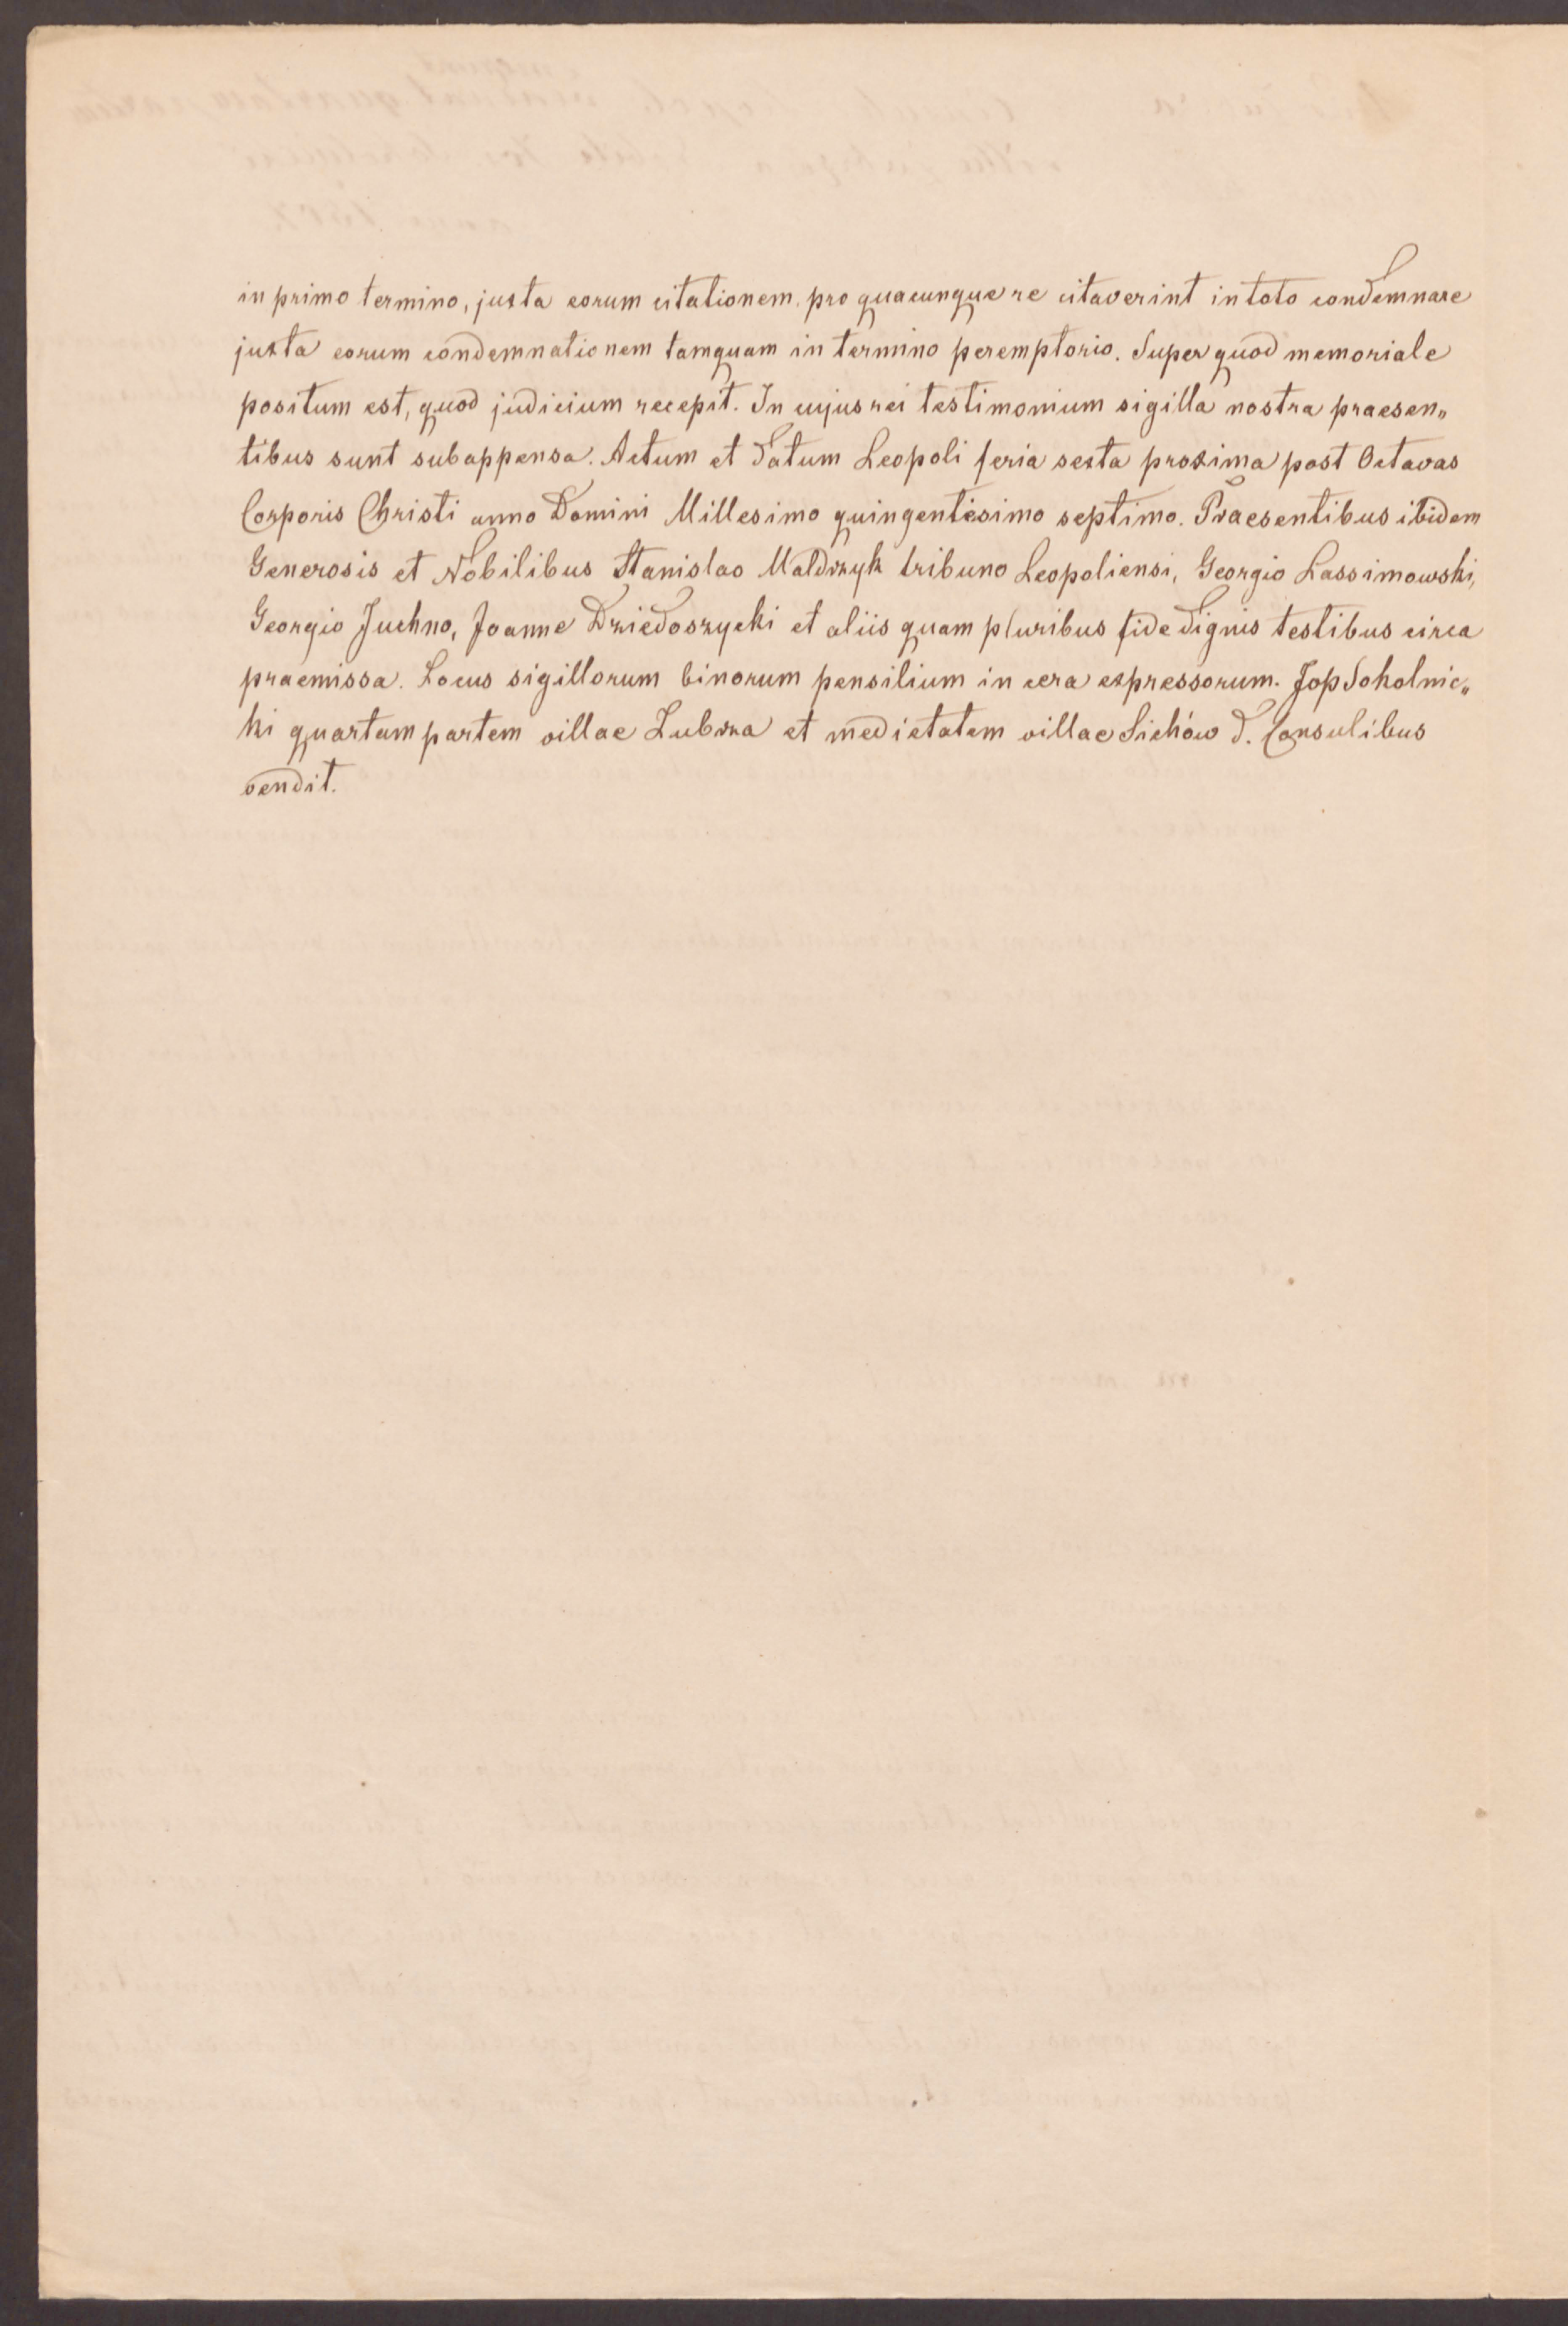 in primo termino, juxta eorum citationem, pro quacunque re citaverint in toto condemnare
juxta eorum condemnationem tamquam in termino peremptorio. Super quod memoriale
positum est, quod judicium recepit. In cujus rei testimonium sigilla nostra praesen„
tibus sunt subappensa. Actum et Datum Leopoli feria sexta proxima post Octavas
Corporis Christi anno Domini Millesimo quingentesimo septimo. Praesentibus ibidem
Generosis et Nobilibus Stanislao Maldrzyk tribuno Leopoliensi, Georgio Lassimowski,
Georgio Juchno, Joanne Dziedoszycki et aliis quam pluribus fide dignis testibus circa
praemissa. Locus sigillorum binorum pensilium in cera expressorum. Jop Sokolnic„
ki quartam partem villae Zubrza et medietatem villae Sichów D. Consulibus
vendit.